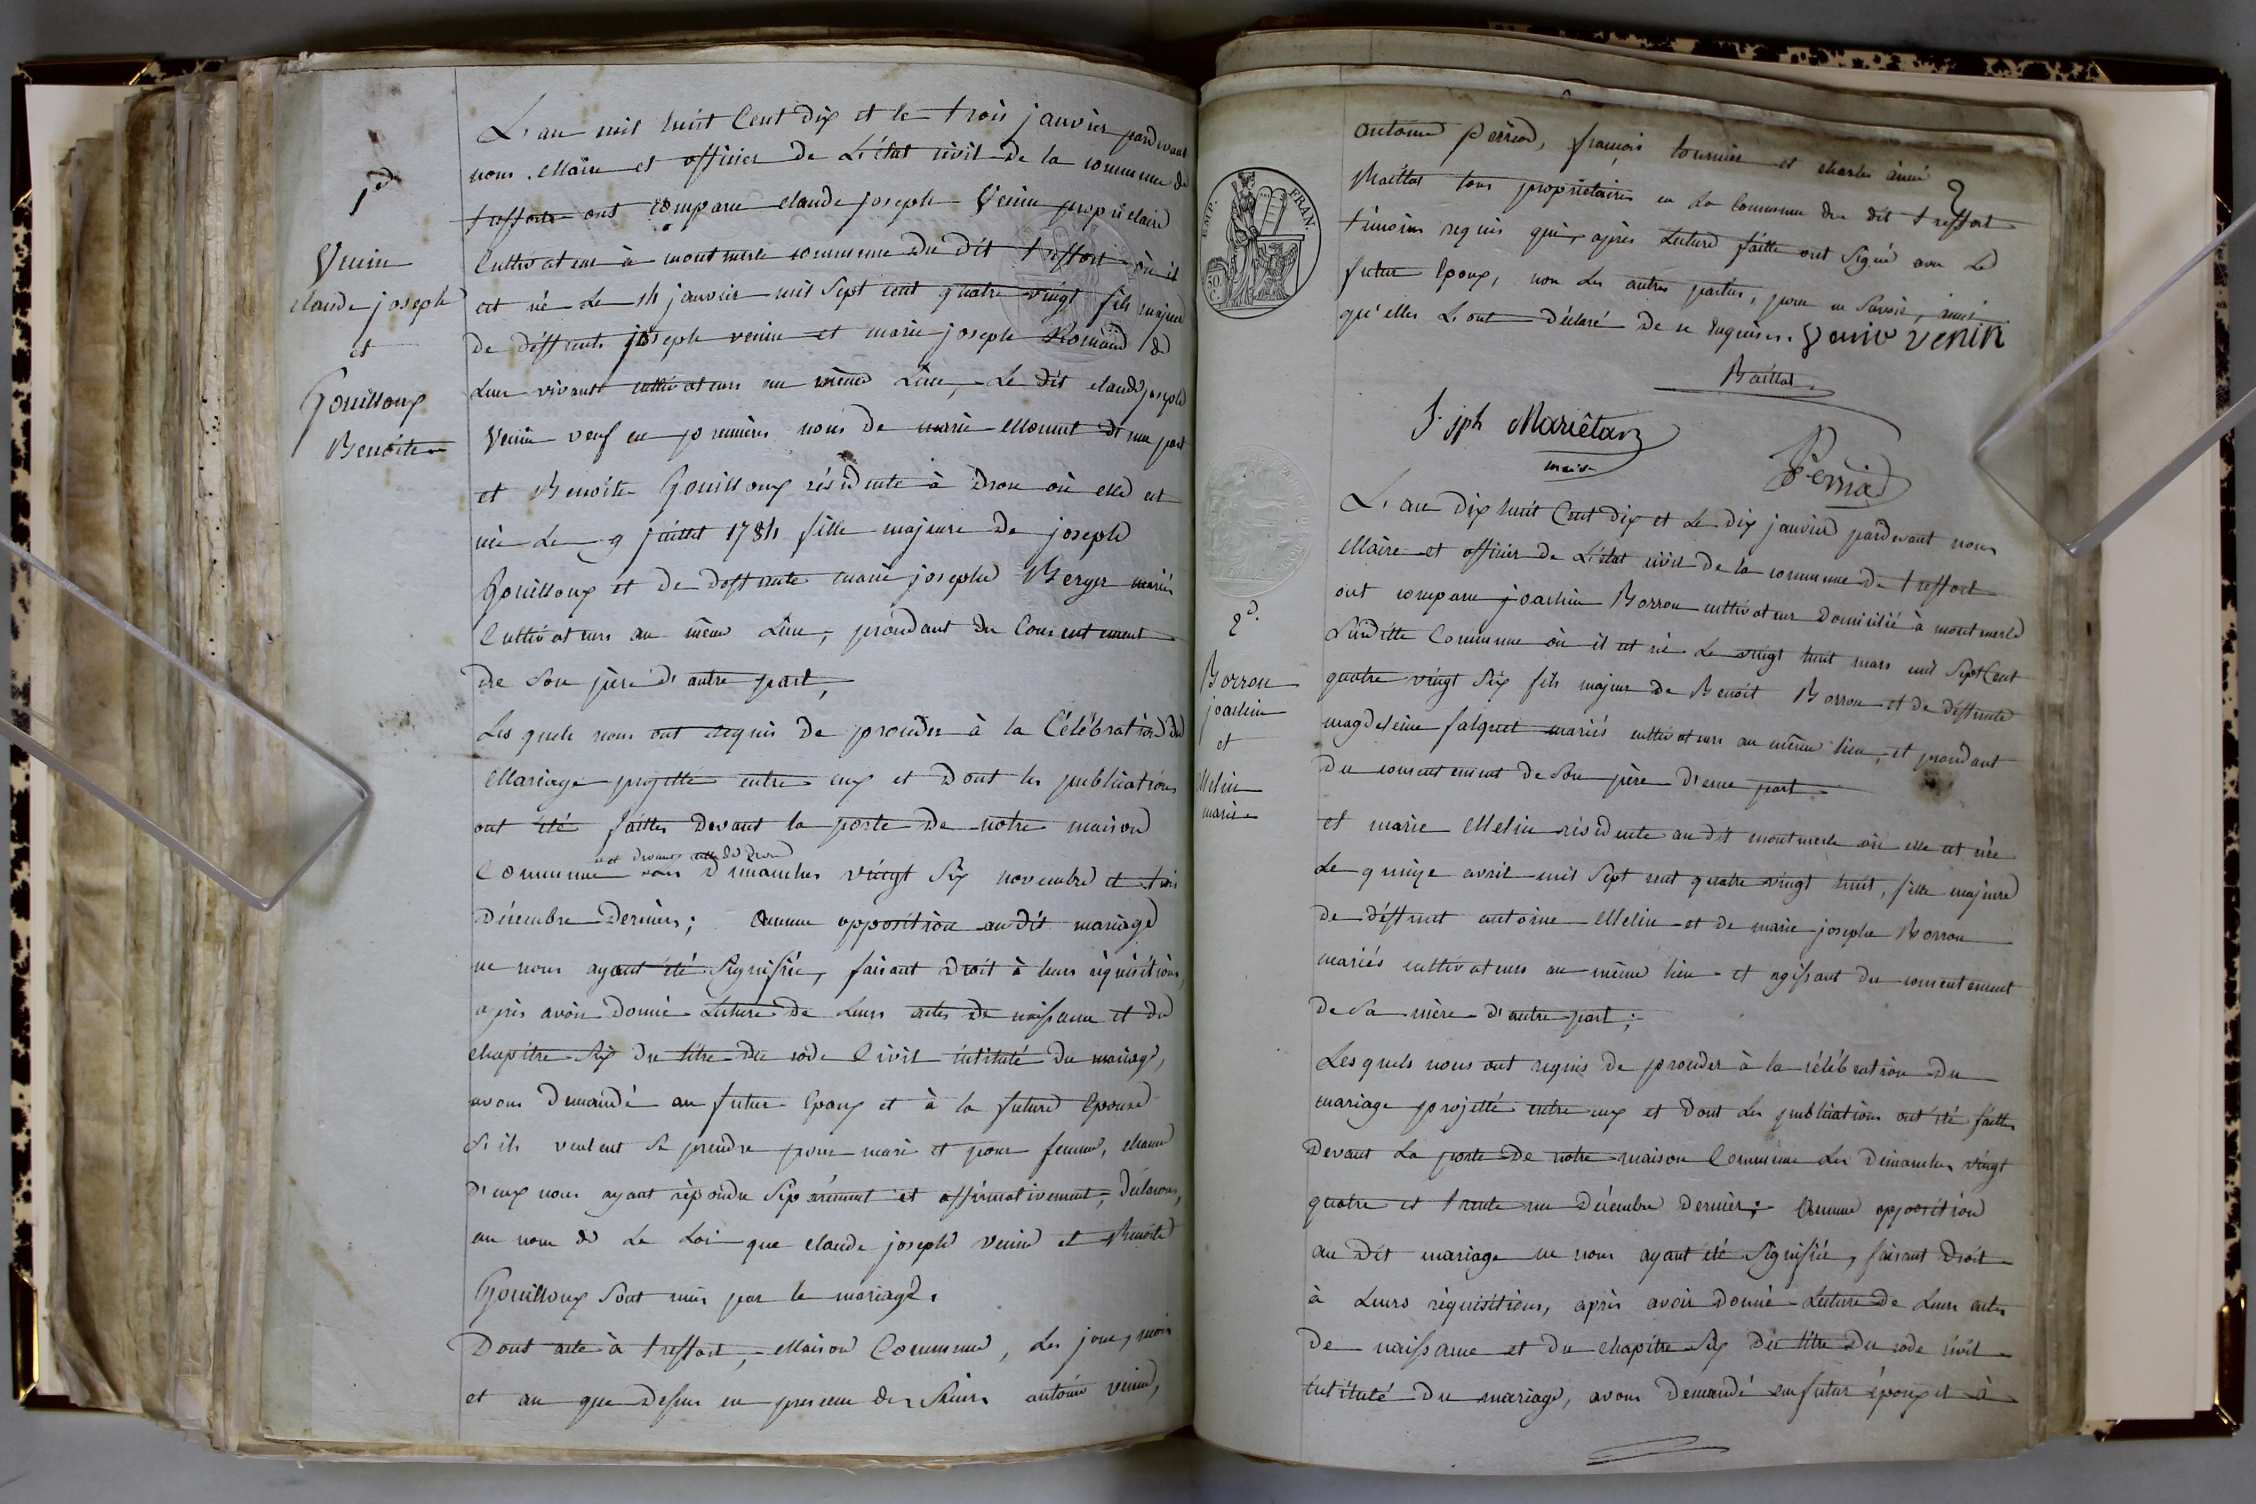 1er
Venin
claude joseph
et
Gouilloux
Benoite
L'an mil huit Cent dix et le trois janvier pardevant
nous Maire et officier de L'état civil de la commune de
treffort ont comparu claude joseph Venin propriétaire
Cultivateur à montmerle commune du dit treffort où il
est né le 14 janvier mil Sept cent quatre vingt fils majeur
de deffunts joseph venin et marie joseph Romand de
Leur vivant cultivateurs au même Lieu, Le dit claude joseph
Venin veuf en premières nôces de marie Monnet d'une part
et Benoite Gouilloux résidente à Drom où elle est
née Le 9 juillet 1784 fille majeure de joseph
Gouilloux et de deffunte marie josephe Berger mariés
Cultivateurs au même Lieu, procédant du Consentement
de Son père d'autre part,
Les quels nous ont requis de procéder à la Célébration du
Mariage projetté entre eux et Dont les publications
ont été faittes Devant la porte De notre maison
et devant celle de Drom
Commune Dimanches vingt Six novembre et trois
Décembre Derniers; Aucune opposition au dit mariage
ne nous ayant été Signifiée, faisant Droit à leurs réquisitions,
après avoir Donné Lecture De Leurs actes De naissance et du
chapitre Six Du titre Du code Civil intitulé Du mariage,
avons Demandé au futur Epoux et à la future Epouse
S'ils veulent Se prendre pour mari et pour femme, chacun
D'eux nous ayant répondu Séparément et affirmativement, Déclarons,
au nom de La Loi que claude joseph venin et Benoite
Gouilloux Sont unis par le mariage.
Dont acte à treffort, Maison Commune, Les jour, mois
et an que Dessus en presence des Sieurs antoine venin,
antoine perriod, françois tournier et charles aimé
Maillat tous propriétaires en La Commune du dit treffort
témoins requis qui, après Lecture faitte ont Signé avec Le
futur Epoux, non Les autres parties, pour ne Savoir, ainsi
qu'elles L'ont Déclaré De ce Enquises. Venin venin
Maillat
J. jph Mariêtan
maire
Perriod
EMP. FRAN.
50 C.
2e.
Borron
joachin
et
Melin
marie
L'an Dix huit Cent dix et Le Dix janvier pardevant nous
Maire et officier de L'état civil De la commune De treffort
ont comparu joachin Borron cultivateur Domicilié à montmerle
Susditte Commune où il est né Le vingt huit mars mil Sept Cent
quatre vingt Six fils majeur de Benoit Borron et de deffunte
magdeleine falquet mariés cultivateurs au même lieu, et procédant
Du consentement de Son père D'une part
et marie Melin résidente au dit montmerle où elle est née
Le quinze avril mil Sept cent quatre vingt huit, fille majeure
de deffunt antoine Melin et de marie josephe Borron
mariés cultivateurs au même lieu et agissant du consentement
de Sa mère D'autre part;
Lesquels nous ont requis de procéder à la célébration du
mariage projetté entre eux et Dont Les publications ont été faittes
Devant La porte De notre maison Commune Les Dimanches vingt
quatre et trente un Décembre Dernier; Aucune opposition
au Dit mariage ne nous ayant été Signifiée, faisant Droit
à Leurs réquisitions, après avoir Donné Lecture De Leurs actes
De naissance et Du chapitre Six Du titre Du code civil
intitulé Du mariage, avons Demandé au futur époux et à